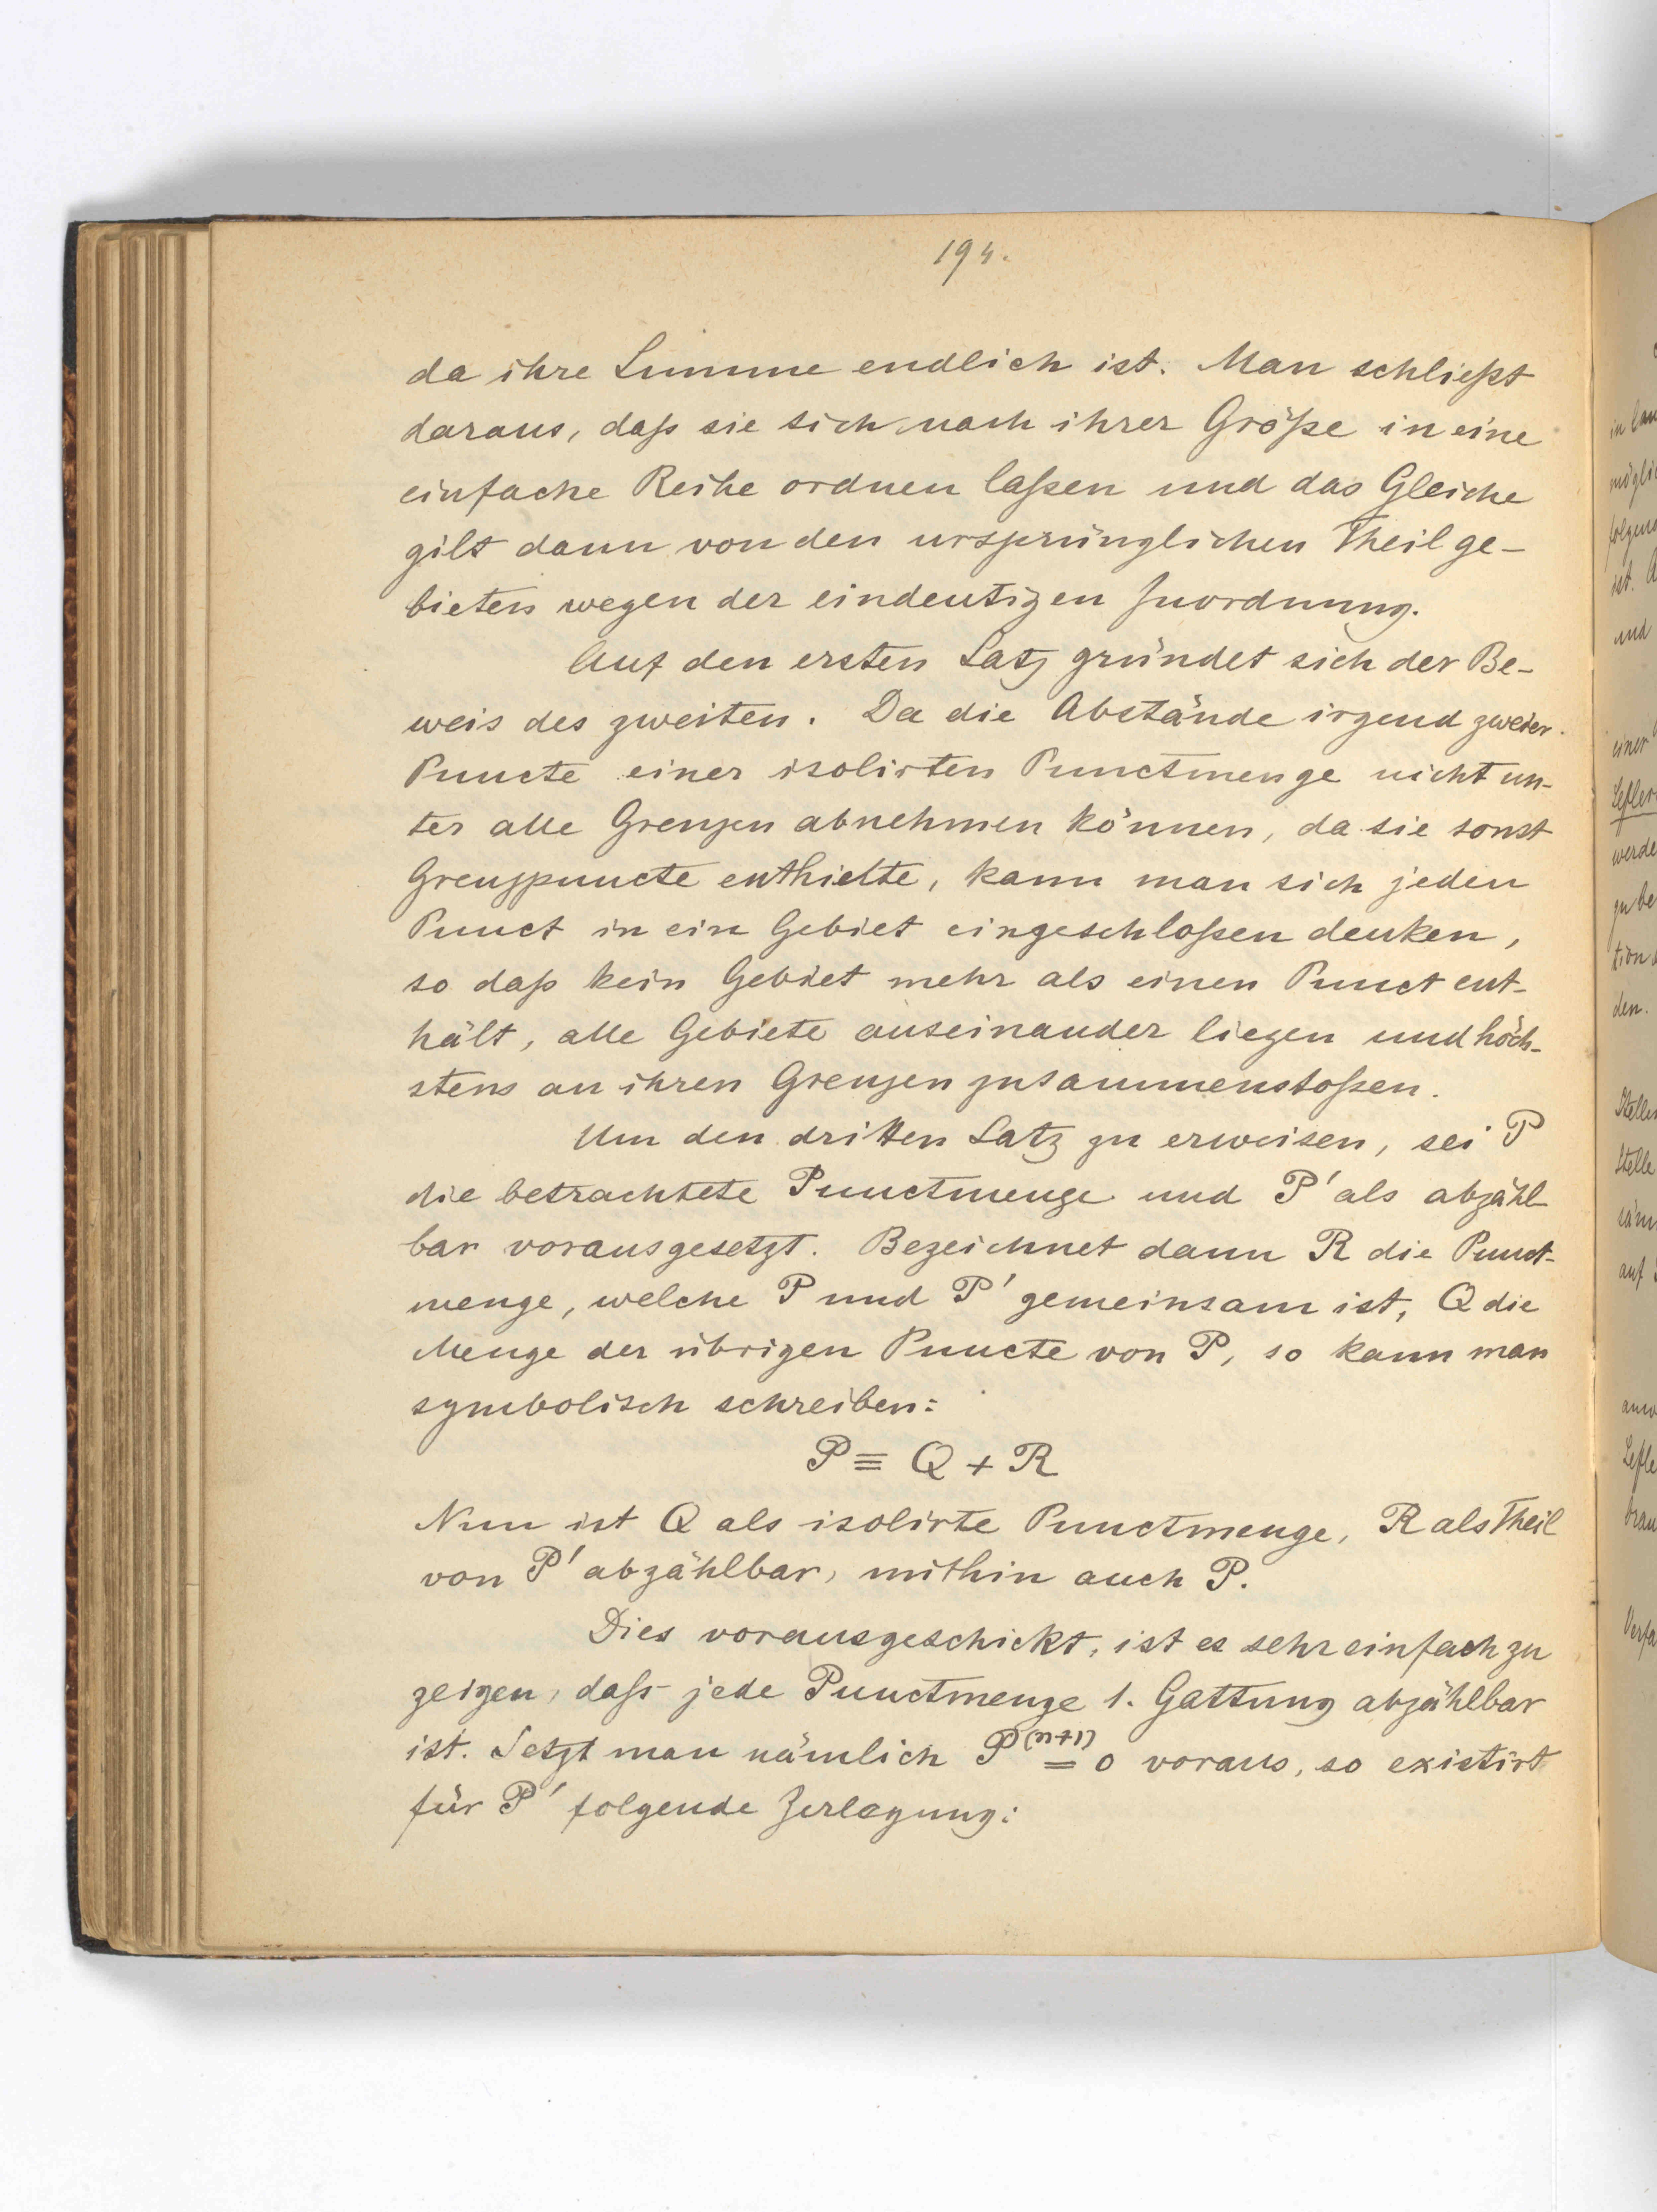 194.
da ihre Summe endlich ist. Man schließt
daraus, daß sie sich nach ihrer Größe in eine
einfache Reihe ordnen laßen und das Gleiche
gilt dann von den ursprünglichen Theilge-
bieten wegen der eindeutigen Zuordnung.
Auf den ersten Satz gründet sich der Be-
weis des zweiten. Da die Abstände irgend zweier
Puncte einer isolirten Punctmenge nicht un-
ter alle Grenzen abnehmen können, da sie sonst
Grenzpuncte enthielte, kann man sich jeden
Punct in ein Gebiet eingeschloßen denken,
so daß kein Gebiet mehr als einen Punct ent-
hält, alle Gebiete auseinander liegen und höch-
stens an ihren Grenzen zusammenstoßen.
Um den dritten Satz zu erweisen, sei P
die betrachtete Punctmenge und P' als abzähl-
bar vorausgesetzt. Bezeichnet dann R die Punct-
menge, welche P und P' gemeinsam ist, Q die
Menge der übrigen Puncte von P, so kann man
symbolisch schreiben:
P ≡ Q + R
Nun ist Q als isolirte Punctmenge, R als Theil
von P' abzählbar, mithin auch P.
Dies vorausgeschickt, ist es sehr einfach zu
zeigen, daß jede Punctmenge 1. Gattung abzählbar
ist. Setzt man nämlich P⁽ⁿ⁺¹⁾ = 0 voraus, so existirt
für P' folgende Zerlegung: